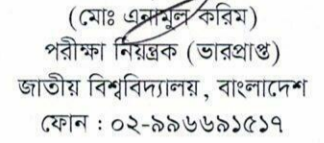 (মোঃ এনামুল করিম)
পরীক্ষা নিয়ন্ত্রক (ভারপ্রাপ্ত)
জাতীয় বিশ্ববিদ্যালয়, বাংলাদেশ
ফোন : ০২-৯৯৬৬৯১৫১৭